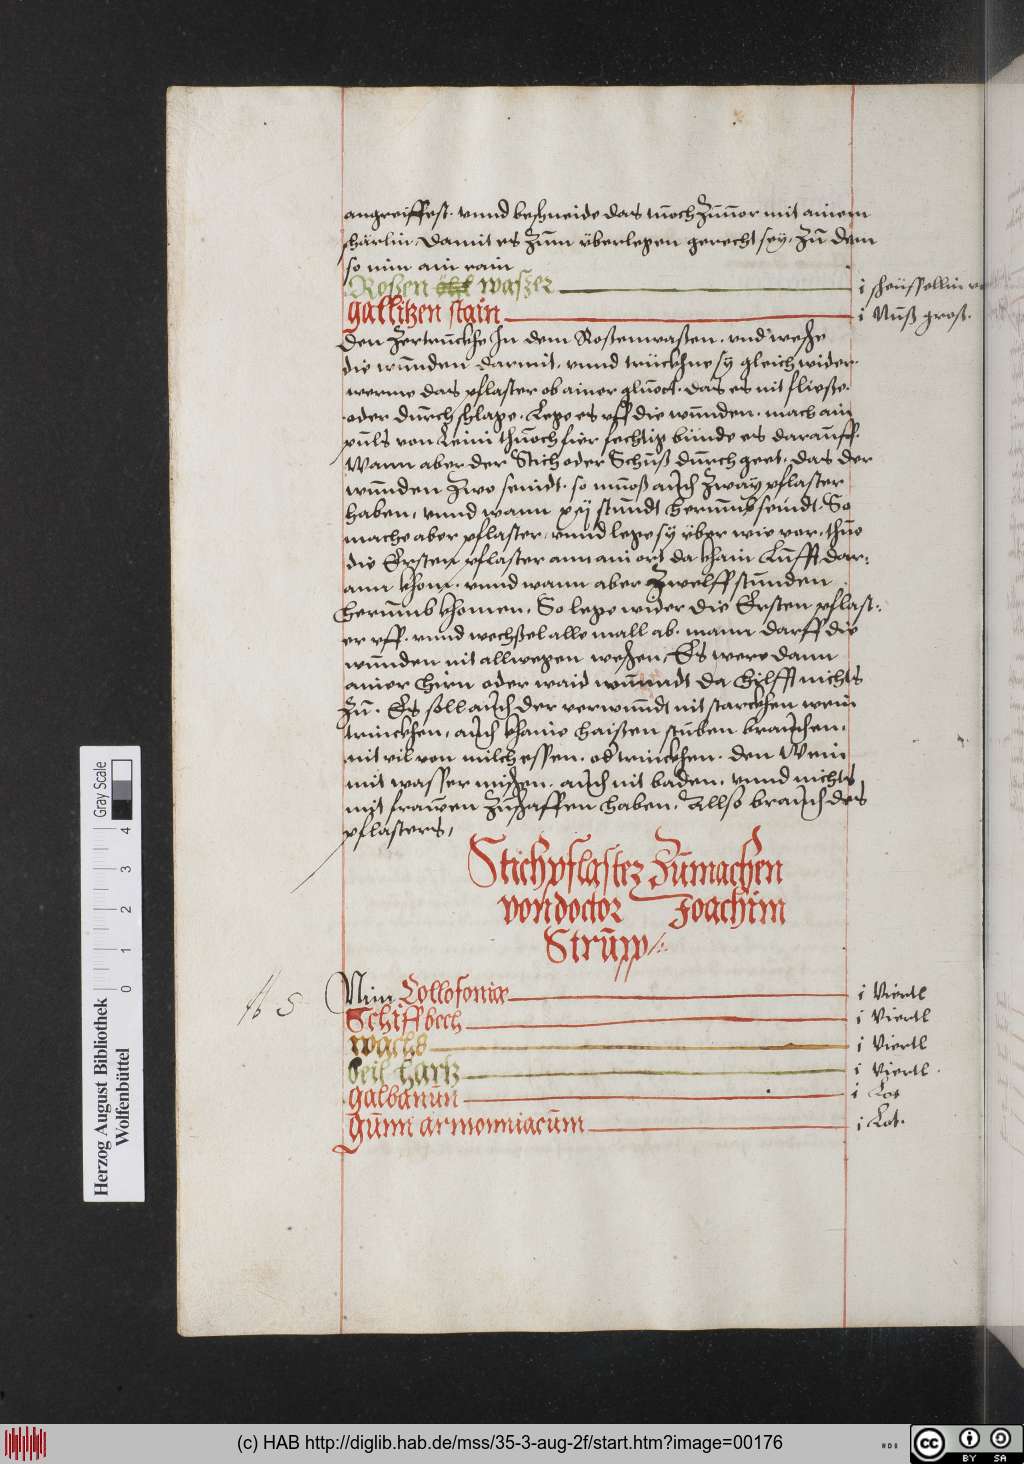 angreiffest. vnnd beschneide das tuͦoch Zuͦuor mit ainem
schärlin. Damit es Zum überlegen gerecht sey, Zu dem
so nim ain rain
Roßen waßer i
Gallitzen stain i Nuß groß.
Den Zertruckhe In dem Roßenwaßer. vnd wesche
die wunden darmit. vnnd trückhne sy gleich wider.
werme das pflaster ob ainer gluͦot. das es nit fließe.
oder durch schlage. Lege es vff die wunden. mach ain
von Leini thuͦoch fier fechtig binde es darauff.
Wann aber der Stich oder Schuß durch geet. das der
wunden Zwo seindt. so muͦoß auch Zway pflaster
haben, vnnd wann xij stundt herumb seindt. So
mache aber pflaster, vnnd lege sy über wie vor, thue
die Ersten pflaster ann ain ort da khain Lufft dar-
ann khom. vnnd wann aber Zwelff stunden
herumb khomen. So lege wider die Ersten pflast-
er vff. vnnd wechßel alle mall ab. mann darff die
wunden nit allwegen weschen, Es were dann
ainer hirn oder waid wundt da hilfft nichts
Zu. Es soll auch der verwundt nit starckhen wein
trinckhen, auch khaine haißen stuben brauchen,
nit vil von milch essen. od trinckhen. den Wein
mit wasser mischen. auch nit baden. vnnd nichts
mit frawen Zuschaffen haben. Allso brauch des
pflasters,
Stichpflaster Zumachen
von doctor Joachim
Strupp
Nim Collofoniæ i Viertl
Schiffbech i Viertl
wachs i Viertl
beil hartz i Viertl.
galbanun i Lot
Gumi armonniacum i Lot.
5
Herzog August Bibliothek
Wolfenbüttel
0 1 2 3 4
Gray Scale
(c) HAB http://diglib.hab.de/mss/35-3-aug-2f/start.htm?image=00176
cc BY SA